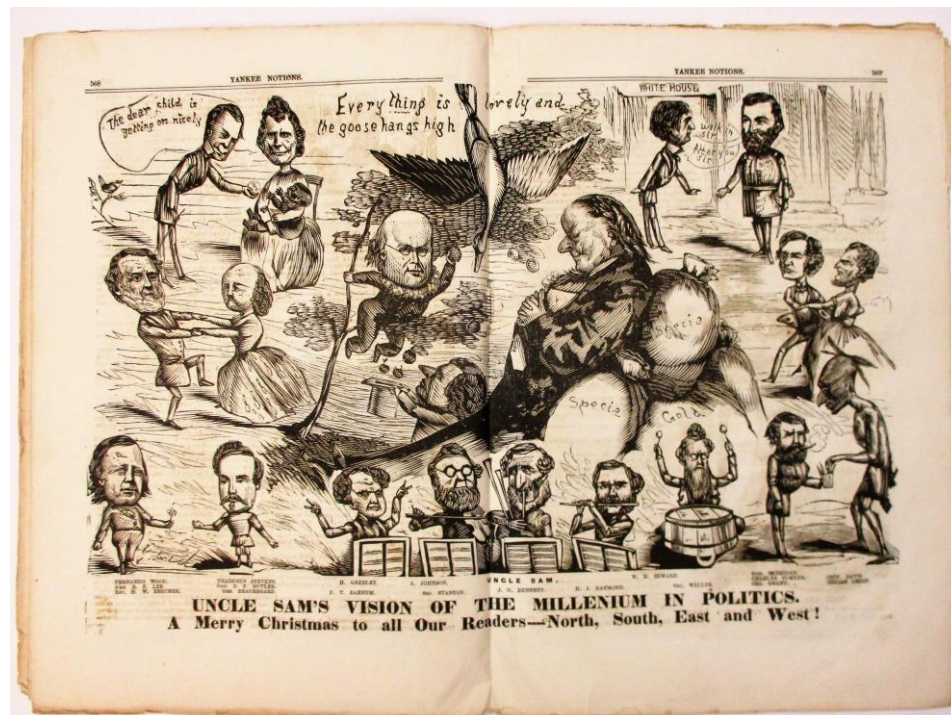 368
YANKEE NOTIONS.
YANKEE NOTIONS.
369
The dear child is
getting on nicely
Every thing is lovely and
the goose hangs high
WHITE HOUSE
Walk in
sir
After you
sir
Specie
Specie
Gold
FERNANDO WOOD.
GEN. R. E. LEE.
REV. H. W. BEECHER.
THADDEUS STEVENS.
GEN. B. F. BUTLER.
GEN. BEAUREGARD.
H. GREELEY.
P. T. BARNUM.
A. JOHNSON.
SEC. STANTON.
UNCLE SAM.
J. G. BENNETT.
H. J. RAYMOND.
W. H. SEWARD.
SEC. WELLES.
GEN. SHERIDAN.
CHARLES SUMNER.
GEN. GRANT.
JEFF. DAVIS.
UNCLE SAM'S VISION OF THE MILLENIUM IN POLITICS.
A Merry Christmas to all Our Readers—North, South, East and West!